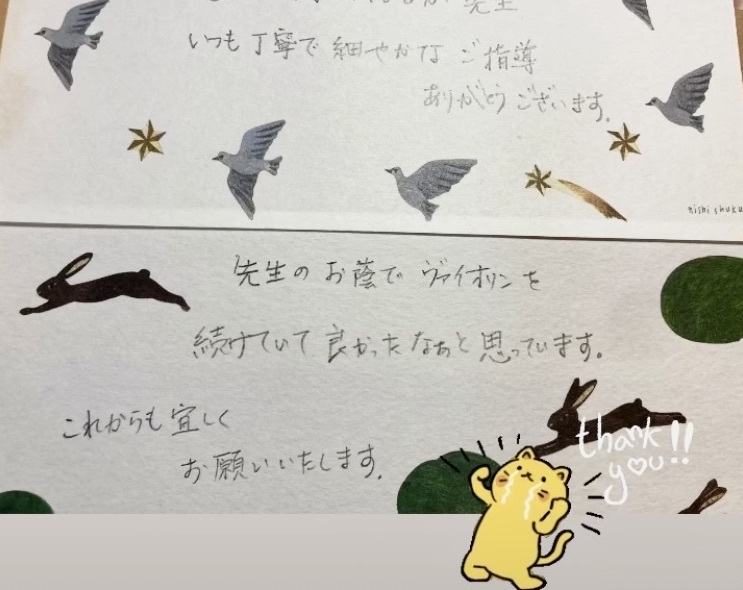 先生
いつも丁寧で細やかなご指導
ありがとうございます。
nishi shuku
先生のお蔭でヴァイオリンを
続けていて良かったなぁと思っています。
これからも宜しく
お願いいたします。
thank
you!!